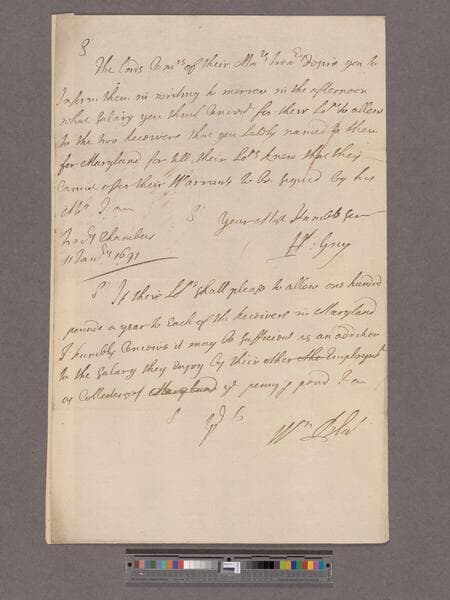 S
The Lords Comrs of their Mats Treary desire you to
Inform them in writing to morrow in the afternoon
what salary you think Convent for their Lops to allow
to the two Receivers that you lately named to them
for Maryland for till their Lops know that they
cannot offer their Warrants to be signed by his
Maty I am
Sr Your Most Humble Ser
Treary Chambers Hen: Guy
11 Janry 1691
Sr If their Lops shall please to allow one hundred
pounds a year to Each of the Receivers in Maryland
I humbly Conceive it may be sufficient as an addition
to the salary they enjoy by their other the Employmt
as Collectors of Maryland ye penny p pound I am
S
Wm Blat